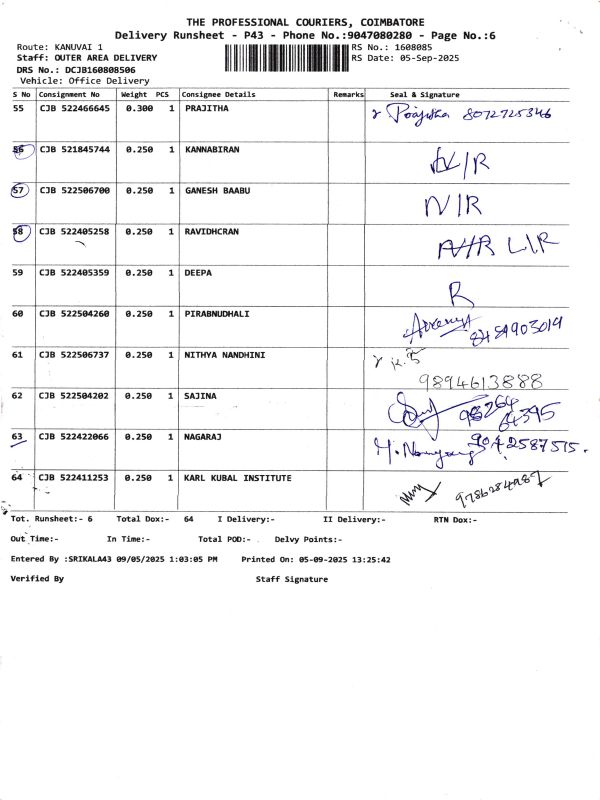 THE PROFESSIONAL COURIERS, COIMBATORE
Delivery Runsheet - P43 - Phone No.:9047080280 - Page No.:6
Route: KANUVAI 1 RS No.: 1608085
Staff: OUTER AREA DELIVERY RS Date: 05-Sep-2025
DRS No.: DCJB160808506
Vehicle: Office Delivery
S No Consignment No Weight PCS Consignee Details Remarks Seal & Signature
55 CJB 522466645 0.300 1 PRAJITHA Prajitha 8072725346
56 CJB 521845744 0.250 1 KANNABIRAN N/R
57 CJB 522506700 0.250 1 GANESH BAABU N/R
58 CJB 522405258 0.250 1 RAVIDHCRAN N/R L/R
59 CJB 522405359 0.250 1 DEEPA R
60 CJB 522504260 0.250 1 PIRABNUDHALI
61 CJB 522506737 0.250 1 NITHYA NANDHINI 9894613888
62 CJB 522504202 0.250 1 SAJINA 98264 64395
63 CJB 522422066 0.250 1 NAGARAJ 9042587515.
64 CJB 522411253 0.250 1 KARL KUBAL INSTITUTE 9786284987
Tot. Runsheet:- 6 Total Dox:- 64 I Delivery:- II Delivery:- RTN Dox:-
Out Time:- In Time:- Total POD:- Delvy Points:-
Entered By :SRIKALA43 09/05/2025 1:03:05 PM Printed On: 05-09-2025 13:25:42
Verified By Staff Signature